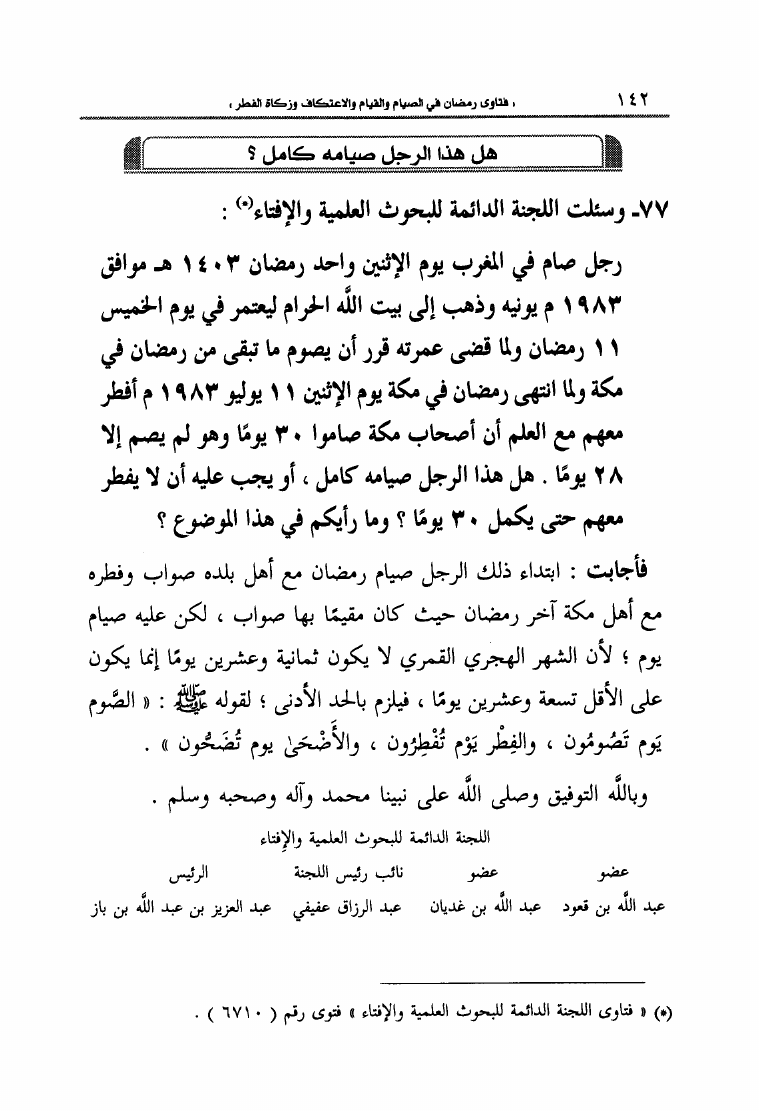 ١٤٢ « فتاوى رمضان في الصيام والقيام والاعتكاف وزكاة الفطر »
هل هذا الرجل صيامه كامل ؟
٧٧ـ وسئلت اللجنة الدائمة للبحوث العلمية والإفتاء(*) :
رجل صام في المغرب يوم الإثنين واحد رمضان ١٤٠٣ هـ موافق
١٩٨٣ م يونيه وذهب إلى بيت الله الحرام ليعتمر في يوم الخميس
١١ رمضان ولما قضى عمرته قرر أن يصوم ما تبقى من رمضان في
مكة ولما انتهى رمضان في مكة يوم الإثنين ١١ يوليو ١٩٨٣ م أفطر
معهم مع العلم أن أصحاب مكة صاموا ٣٠ يومًا وهو لم يصم إلا
٢٨ يومًا . هل هذا الرجل صيامه كامل ، أو يجب عليه أن لا يفطر
معهم حتى يكمل ٣٠ يومًا ؟ وما رأيكم في هذا الموضوع ؟
فأجابت : ابتداء ذلك الرجل صيام رمضان مع أهل بلده صواب وفطره
مع أهل مكة آخر رمضان حيث كان مقيمًا بها صواب ، لكن عليه صيام
يوم ؛ لأن الشهر الهجري القمري لا يكون ثمانية وعشرين يومًا إنما يكون
على الأقل تسعة وعشرين يومًا ، فيلزم بالحد الأدنى ؛ لقوله ﷺ : « الصَّوم
يَوم تَصُومُون ، والفِطْر يَوْم تُفْطِرُون ، والأَضْحَىٰ يوم تُضَحُّون » .
وبالله التوفيق وصلى الله على نبينا محمد وآله وصحبه وسلم .
اللجنة الدائمة للبحوث العلمية والإفتاء
عضو عضو نائب رئيس اللجنة الرئيس
عبد الله بن قعود عبد الله بن غديان عبد الرزاق عفيفي عبد العزيز بن عبد الله بن باز
(*) « فتاوى اللجنة الدائمة للبحوث العلمية والإفتاء » فتوى رقم ( ٦٧١٠ ) .